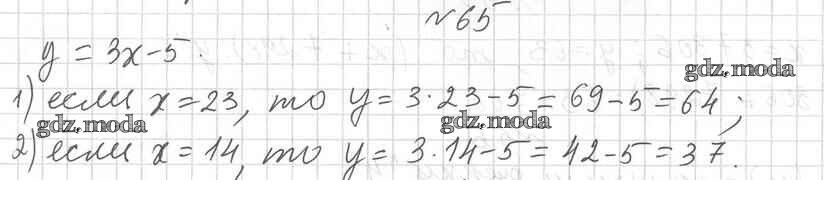 №65
y = 3x-5.
gdz.moda
1) если x=23, то y= 3·23-5=69-5=64;
gdz.moda gdz.moda
2) если x=14, то y= 3·14-5=42-5=37.